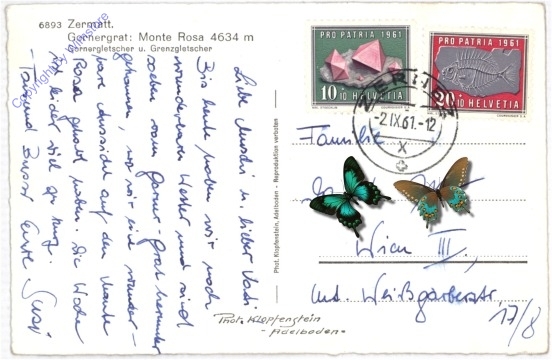 6893 Zermatt.
Gornergrat: Monte Rosa 4634 m
Gornergletscher u. Grenzgletscher
Copyright by bilmstore
Liebe Mutti u. lieber Vati
Bis heute haben wir noch
wundervolles Wetter und sind
soeben vom Gorner-Grat herunter
gekommen, wo wir eine wunder-
bare Aussicht auf den Monte
Rosa gehabt haben. Die Woche
ist leider viel zu kurz.
-Tausend Bussi Eure Susi
Phot. Klopfenstein, Adelboden - Reproduktion verboten
PRO PATRIA 1961
10+10 HELVETIA
PRO PATRIA 1961
20+10 HELVETIA
-2.IX.61.-12
X
Familie
Wien III.,
Unt. Weißgärberstr.
17/8
Phot. Klopfenstein
- Adelboden -